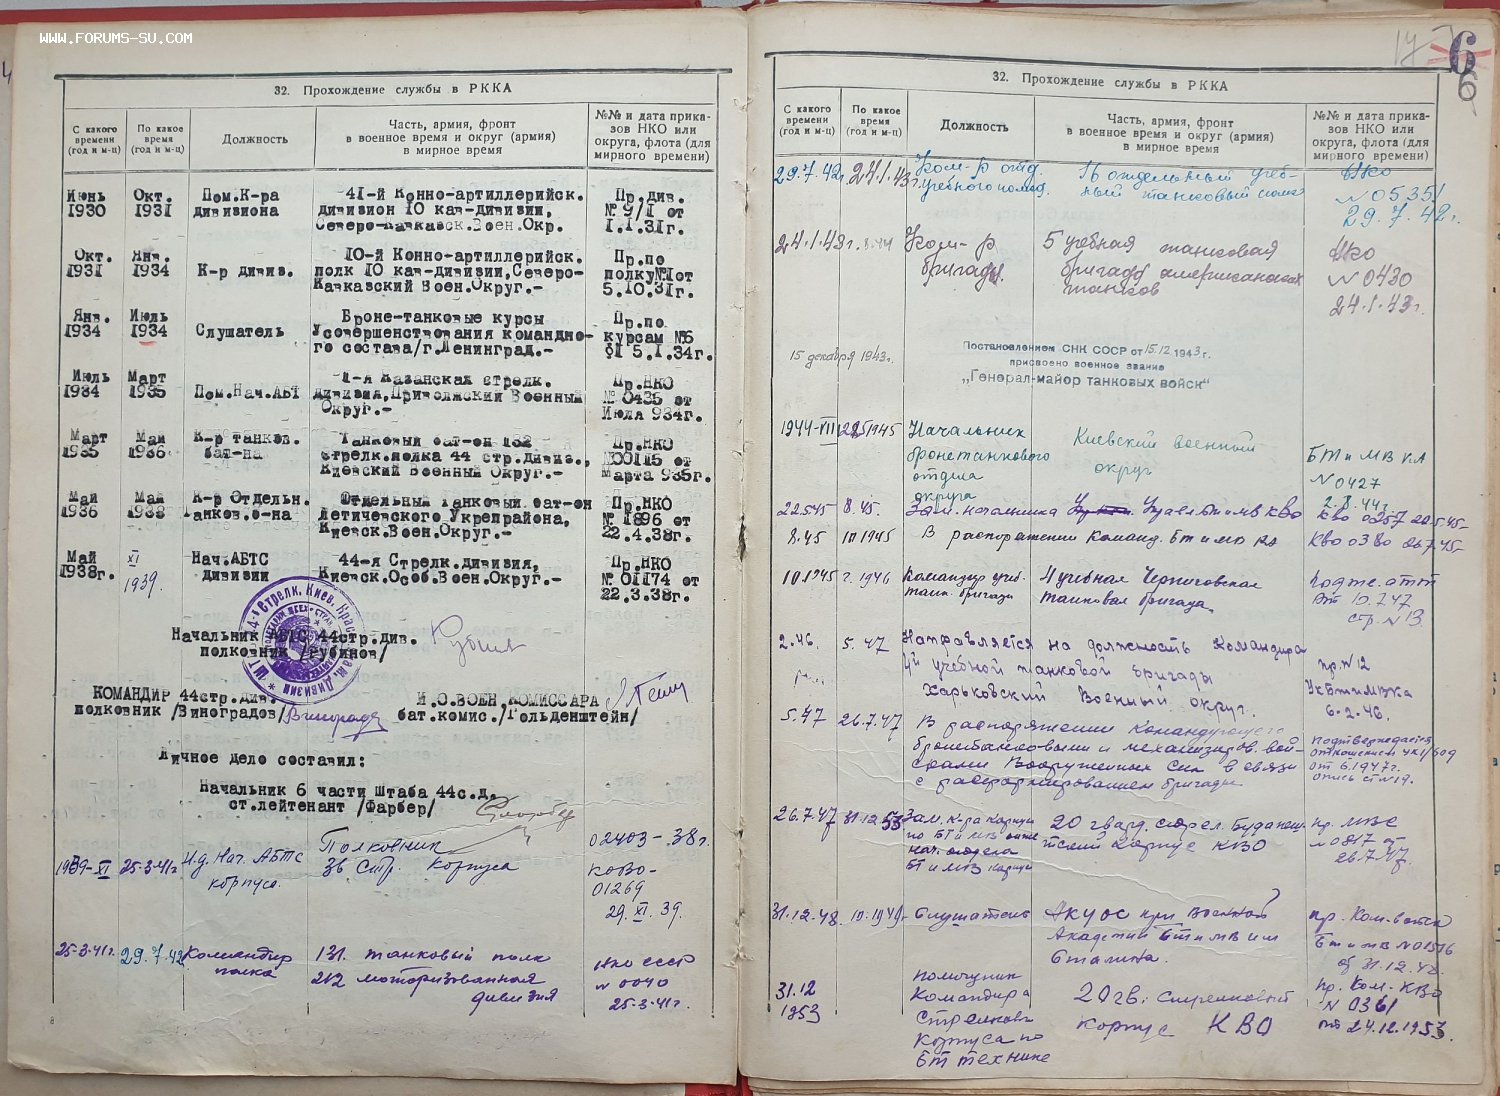 WWW.FORUMS-SU.COM
32. Прохождение службы в РККА
С какого времени (год и м-ц)
По какое время (год и м-ц)
Должность
Часть, армия, фронт в военное время и округ (армия) в мирное время
№№ и дата приказов НКО или округа, флота (для мирного времени)
Июнь 1930
Окт. 1931
Пом.К-ра дивизиона
41-й Конно-артиллерийск.
дивизион 10 кав-дивизии,
Северо-Кавказск.Воен.Окр.
Пр.див.
№ 9/II от
1.1.31г.
Окт. 1931
Янв. 1934
К-р дивиз.
10-й Конно-артиллерийск.
полк 10 кав-дивизии,Северо-
Кавказский Воен.Округ.-
Пр.по
полку№1от
5.10.31г.
Янв. 1934
Июль 1934
Слушатель
Броне-танковые курсы
Усовершенствования командно-
го состава/г.Ленинград.-
Пр.по
курсам №6
от 5.I.34г.
Июль 1934
Март 1935
Пом.Нач.АБТ
1-я Казанская стрелк.
дивизия,Приволжский Военный
Округ.-
Пр.НКО
№ 0435 от
Июля 934г.
Март 1935
Май 1936
К-р танков.
бат-на
Танковый бат-он 132
стрелк.полка 44 стр.дивиз.,
Киевский Военный Округ.-
Пр.НКО
№00115 от
Марта 935г.
Май 1936
Май 1938
К-р Отдельн.
танков.б-на
Отдельный Танковый бат-он
Летичевского Укрепрайона,
Киевск.Воен.Округ.-
Пр.НКО
№ 1896 от
22.4.38г.
Май 1938г.
XI 1939.
Нач.АБТС
дивизии
44-я Стрелк.дивизия,
Киевск.Особ.Воен.Округ.-
Пр.НКО
№ 01174 от
22.3.38г.
Начальник АБТС 44стр.див.
полковник /Рубинов/
КОМАНДИР 44стр.див.
полковник /Виноградов/
И.О.ВОЕН.КОМИССАРА
бат.комис./Гольденштейн/
Личное дело составил:
Начальник 6 части Штаба 44с.д.
ст.лейтенант /Фарбер/
Полковник
02403-38г.
1939-XI
25-3-41г
И.д. Нач. АБТС
корпуса.
36 Стр. Корпуса
КОВО-
01269
29.XI.39.
25-3-41г.
29.7.42
Командир
полка
131. танковый полк
212 моторизованная
дивизия
НКО СССР
№ 0040
25-3-41г.
8
6
6
32. Прохождение службы в РККА
С какого времени (год и м-ц)
По какое время (год и м-ц)
Должность
Часть, армия, фронт в военное время и округ (армия) в мирное время
№№ и дата приказов НКО или округа, флота (для мирного времени)
29.7.42г
24.1.43г.
Ком-р отд.
учебного полка
16 отдельный учеб-
ный танковый полк
НКО
№ 05351
29.7.42г.
24.1.43г.
Ком-р
бригады.
5 учебная танковая
бригада американских
танков
НКО
№ 0430
24.1.43г.
15 декабря 1943г.
Постановлением СНК СССР от 15.12 1943г.
присвоено военное звание
„Генерал-майор танковых войск"
1944-VIII
22.5.1945
Начальник
бронетанкового
отдела
округа
Киевский военный
округ
БТ и МВ КА
№ 0427
2.8.44г.
22.5.45
8.45.
Зам. начальника
Управ. БТ и МВ КВО
КВО 0257 22.5.45-
8.45
10.1945
В распоряжении Команд. БТ и МВ КА
КВО 0380 26.7.45-
10.1945
г. 1946
Командир учеб.
танк. бригады
4 учебная Черниговская
танковая бригада.
Подтв.
10.7.47
стр. №13.
2.46.
5.47
Направляется на должность Командира
4й учебной танковой бригады
Харьковский Военный округ.
пр.№12
УК БТ и МВ КА
6-2.46.
5.47
26.7.47
В распоряжении Командующего
бронетанковыми и механизиров. вой-
сками Вооруженных Сил в связи
с расформированием бригады
Подтверждается
отношением
от 6.1947г.
опись ст №19.
26.7.47
31.12.53
Зам. к-ра корпуса
по БТ и МВ
нач. отдела
БТ и МВ корпуса
20 гвард. стрел. Будапеш-
тский корпус КВО
пр. МВС
№ 0817 от
26.7.47.
31.12.48.
10.1949
Слушатель
АКУОС при Военной
Академии БТ и МВ им
Сталина.
пр. Ком. войск
БТ и МВ №01576
от 31.12.48.
31.12
1953
помощник
Командира
Стрелков.
Корпуса по
БТ технике
20 гв. Стрелковый
корпус КВО
Пр. Ком. КВО
№ 0361
от 24.12.1953.